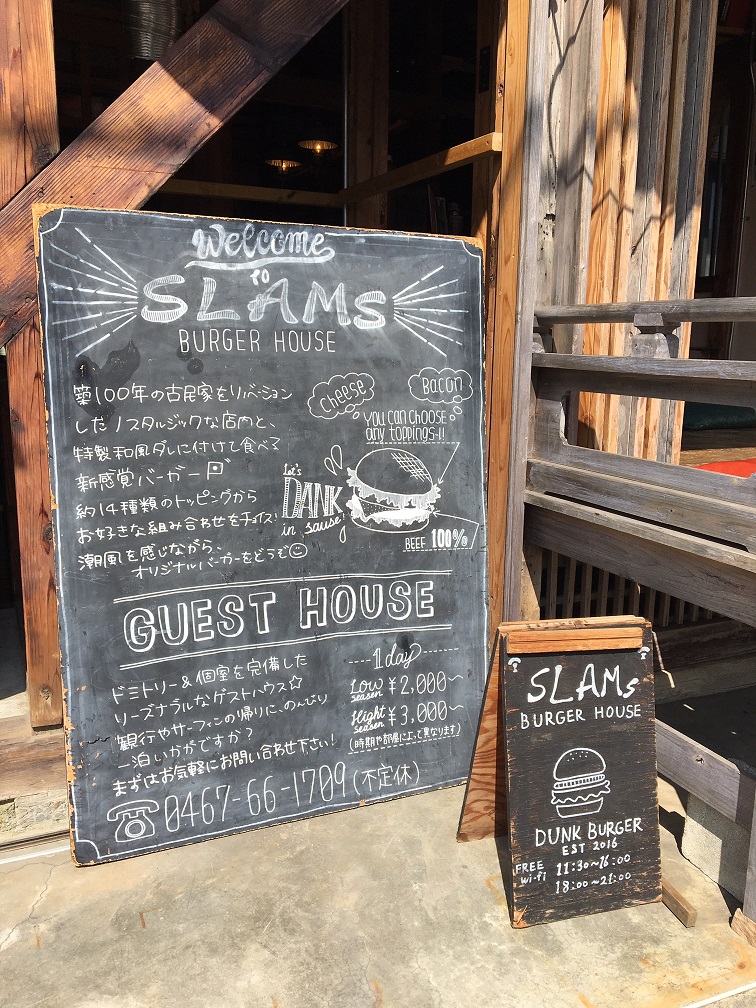 Welcome
TO
SLAMs
BURGER HOUSE
築100年の古民家をリノベーション
したノスタルジックな店内と、
特製和風ダレに付けて食べる
新感覚バーガー
約14種類のトッピングから
お好きな組み合わせをチョイス!
潮風を感じながら、
オリジナルバーガーをどうぞ
Cheese
Bacon
You can choose
any toppings-!!
Let's
DANK
in sause!
BEEF 100%
GUEST HOUSE
ドミトリー&個室を完備した
リーズナブルなゲストハウス☆
観行やサーフィンの帰りに、のんびり
一泊いかがですか?
まずはお気軽にお問い合わせ下さい!
1day
Low
seasen
¥2,000~
Hight
seasen
¥3,000~
(時期や部屋によって異なります)
☎0467-66-1709(不定休)
SLAMs
BURGER HOUSE
DUNK BURGER
EST 2016
FREE
Wi-fi
11:30~16:00
18:00~21:00